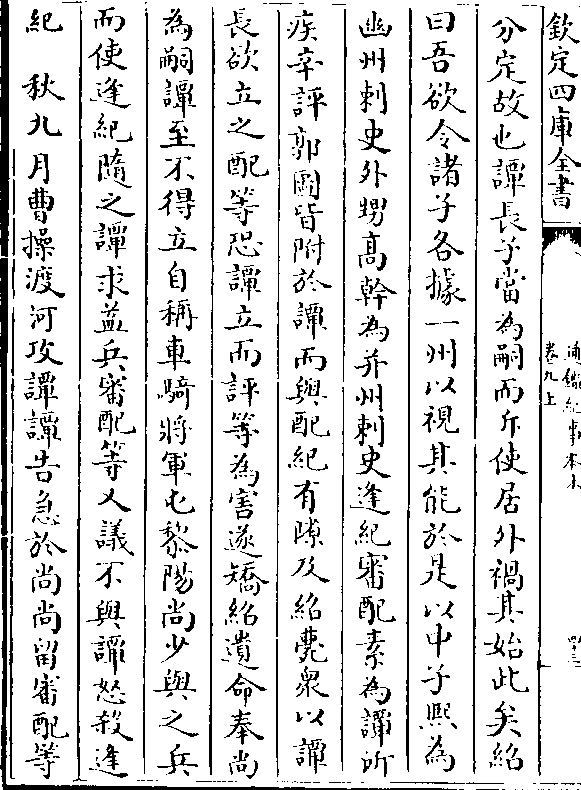 欽定四庫全書
通鑑紀事本末
卷九上
四十三
分定故也譚長子當為嗣而斥使居外禍其始此矣紹
曰吾欲令諸子各據一州以視其能於是以中子熙為
幽州刺史外甥高幹為并州刺史逢紀審配素為譚所
疾辛評郭圖皆附於譚而與配紀有隙及紹薨衆以譚
長欲立之配等恐譚立而評等為害遂矯紹遺命奉尚
為嗣譚至不得立自稱車騎將軍屯黎陽尚少與之兵
而使逢紀隨之譚求益兵審配等又議不與譚怒殺逢
紀 秋九月曹操渡河攻譚譚告急於尚尚留審配等